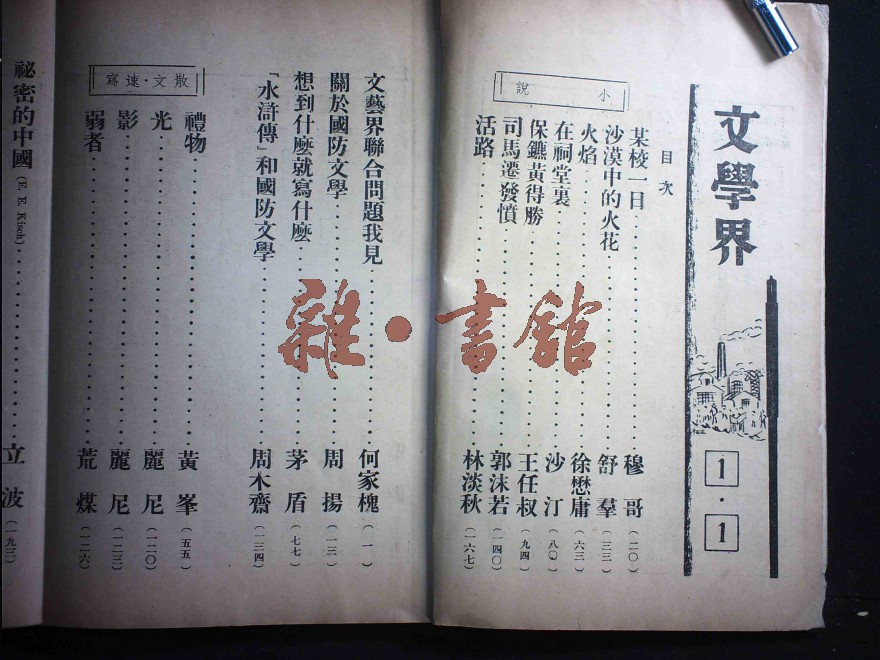 文學界
1·1
目次
小說
某棱一日 穆哥 (二〇)
沙漠中的火花 舒羣 (三三)
火焰 徐懋庸 (六三)
在祠堂裏 沙汀 (八〇)
保鑣黃得勝 王任叔 (九四)
司馬遷發憤 郭沫若 (一四〇)
活路 林淡秋 (一六七)
文藝界聯合問題我見 何家槐 (一)
關於國防文學 周揚 (一三)
想到什麼就寫什麼 茅盾 (七七)
「水滸傳」和國防文學 周木齋 (一三四)
散文·速寫
禮物 黃峯 (五五)
光 麗尼 (一二〇)
影 麗尼 (一二三)
弱者 荒煤 (一二六)
祕密的中國 (E. E. Kisch) 立波 (一九三)
雜·書館